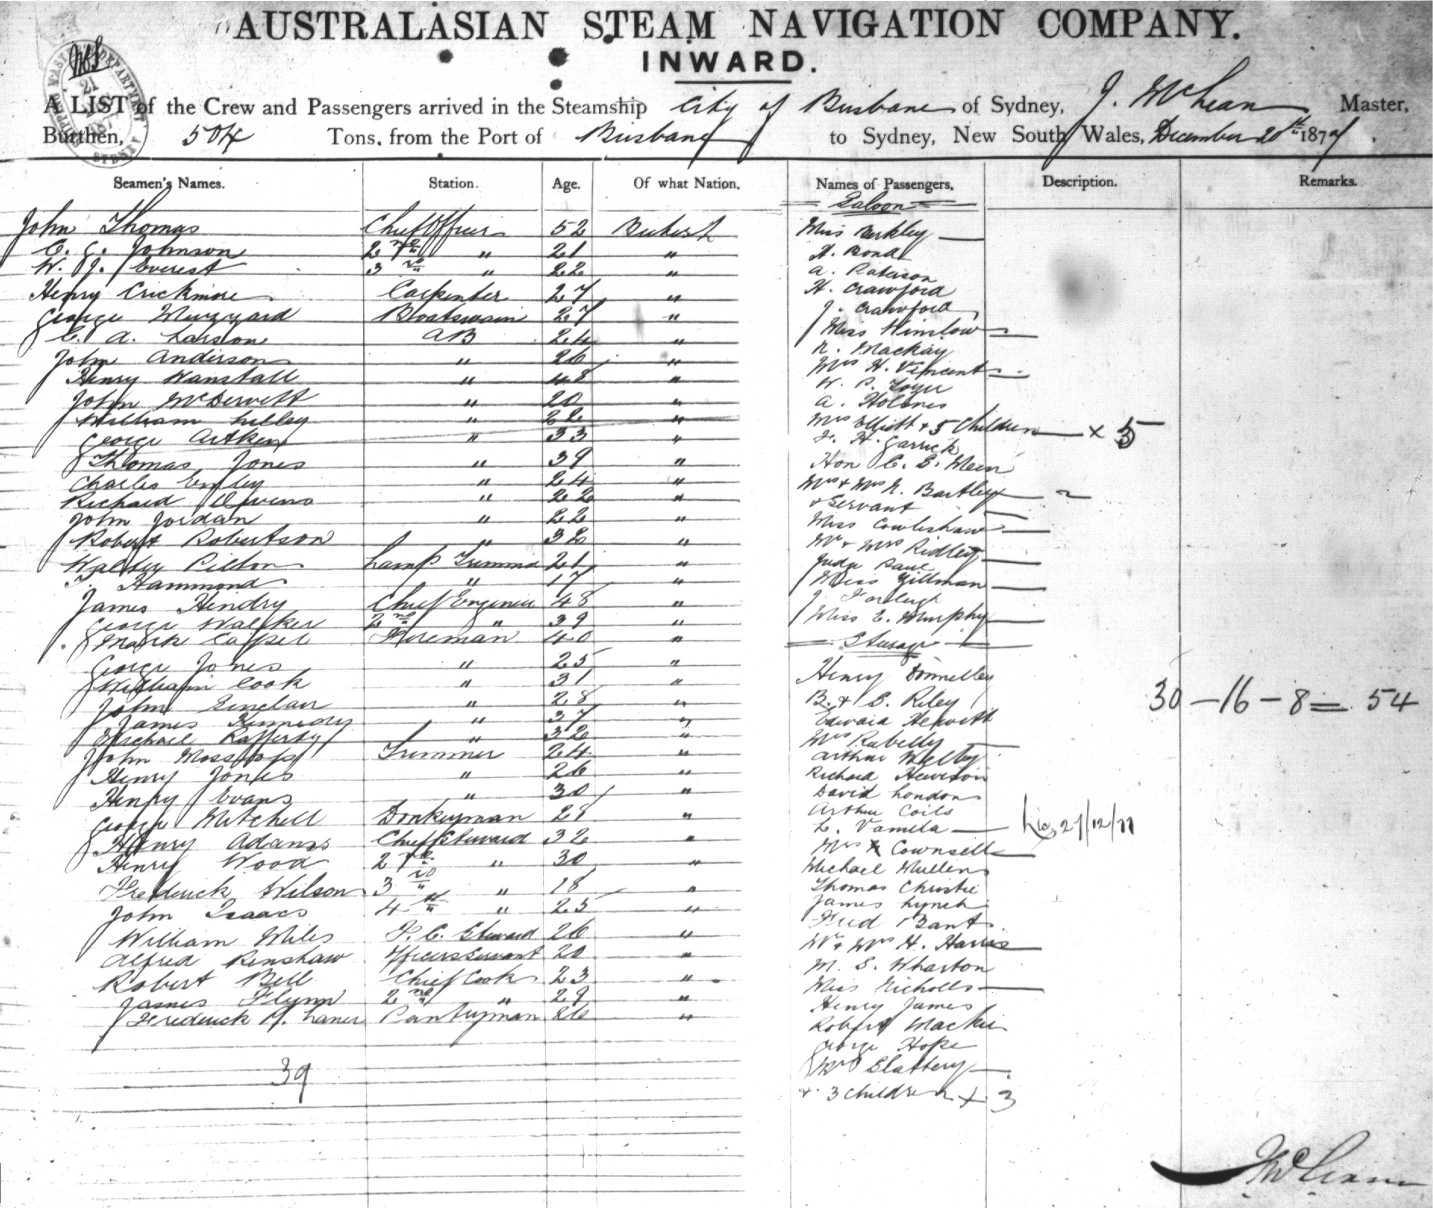 AUSTRALASIAN STEAM NAVIGATION COMPANY.
INWARD.
A LIST of the Crew and Passengers arrived in the Steamship City of Brisbane of Sydney, J. McLean Master,
Burthen, 504 Tons, from the Port of Brisbane to Sydney, New South Wales, December 20th 1877.
Seamen's Names. Station. Age. Of what Nation.
John Thomas Chief Officer 52 British
C. J. Johnson 2nd " 21 "
W. J. Everest 3rd " 22 "
Henry Crickmore Carpenter 27 "
George Muzzard Boatswain 27 "
C. A. Larsson AB 24 "
John Anderson " 26 "
Henry Wanstall " 48 "
John McDervitt " 20 "
William Lilley " 22 "
George Aitken " 33 "
Thomas Jones " 39 "
Charles " 24 "
Richard Owens " 22 "
John Jordan " 22 "
Robert Robertson " 32 "
Walter Lamp Trimmer 21 "
T. Hammond " 17 "
James Hendry Chief Engineer 48 "
George Walker 2nd " 39 "
Mark Casper Fireman 40 "
George Jones " 25 "
William Cook " 31 "
John Sinclair " 28 "
James Kennedy " 37 "
Michael Rafferty " 32 "
John Trimmer 24 "
Henry Jones " 26 "
Henry Evans " 30 "
George Mitchell Donkeyman 28 "
Henry Adams Chief Steward 32 "
Henry Wood 2nd " 30 "
Frederick Wilson 3rd " 18 "
John Isaacs 4th " 25 "
William Miles F. C. Steward 26 "
Alfred Renshaw Officers Servant 20 "
Robert Bell Chief Cook 23 "
James Flynn 2nd " 29 "
Frederick A. Laner Pantryman 26 "
39
Names of Passengers, Description. Remarks.
Saloon
Miss Berkley
H. Bond
A. Ratison
H. Crawford
J. Crawford
Miss Winslow
N. Mackay
Mrs H. Vincent
W. P.
A. Holmes
Mrs Elliott & 5 Children x 5
F. H. Garrick
Hon C. S. Mein
Mr & Mrs N. Bartley
& Servant
Miss Cowlishaw
Mr & Mrs Ridley
Judge
Miss Gillman
J.
Miss E. Murphy
Steerage
Henry Donnelley
B. & C. Riley
Edward Hepworth
Mrs Rabelly
Arthur Melby
Richard Hewison
David London
Arthur Coils
L. Vamella 21/12/77
Mrs Counsell
Michael Mullens
Thomas Christie
James Lynch
Fred Bant
Mr & Mrs H. Harris
M. S. Wharton
Miss Nicholls
Henry James
Robert Mackie
George Hope
Mrs Slattery
& 3 children + 3
30 - 16 - 8 = 54
J McLean